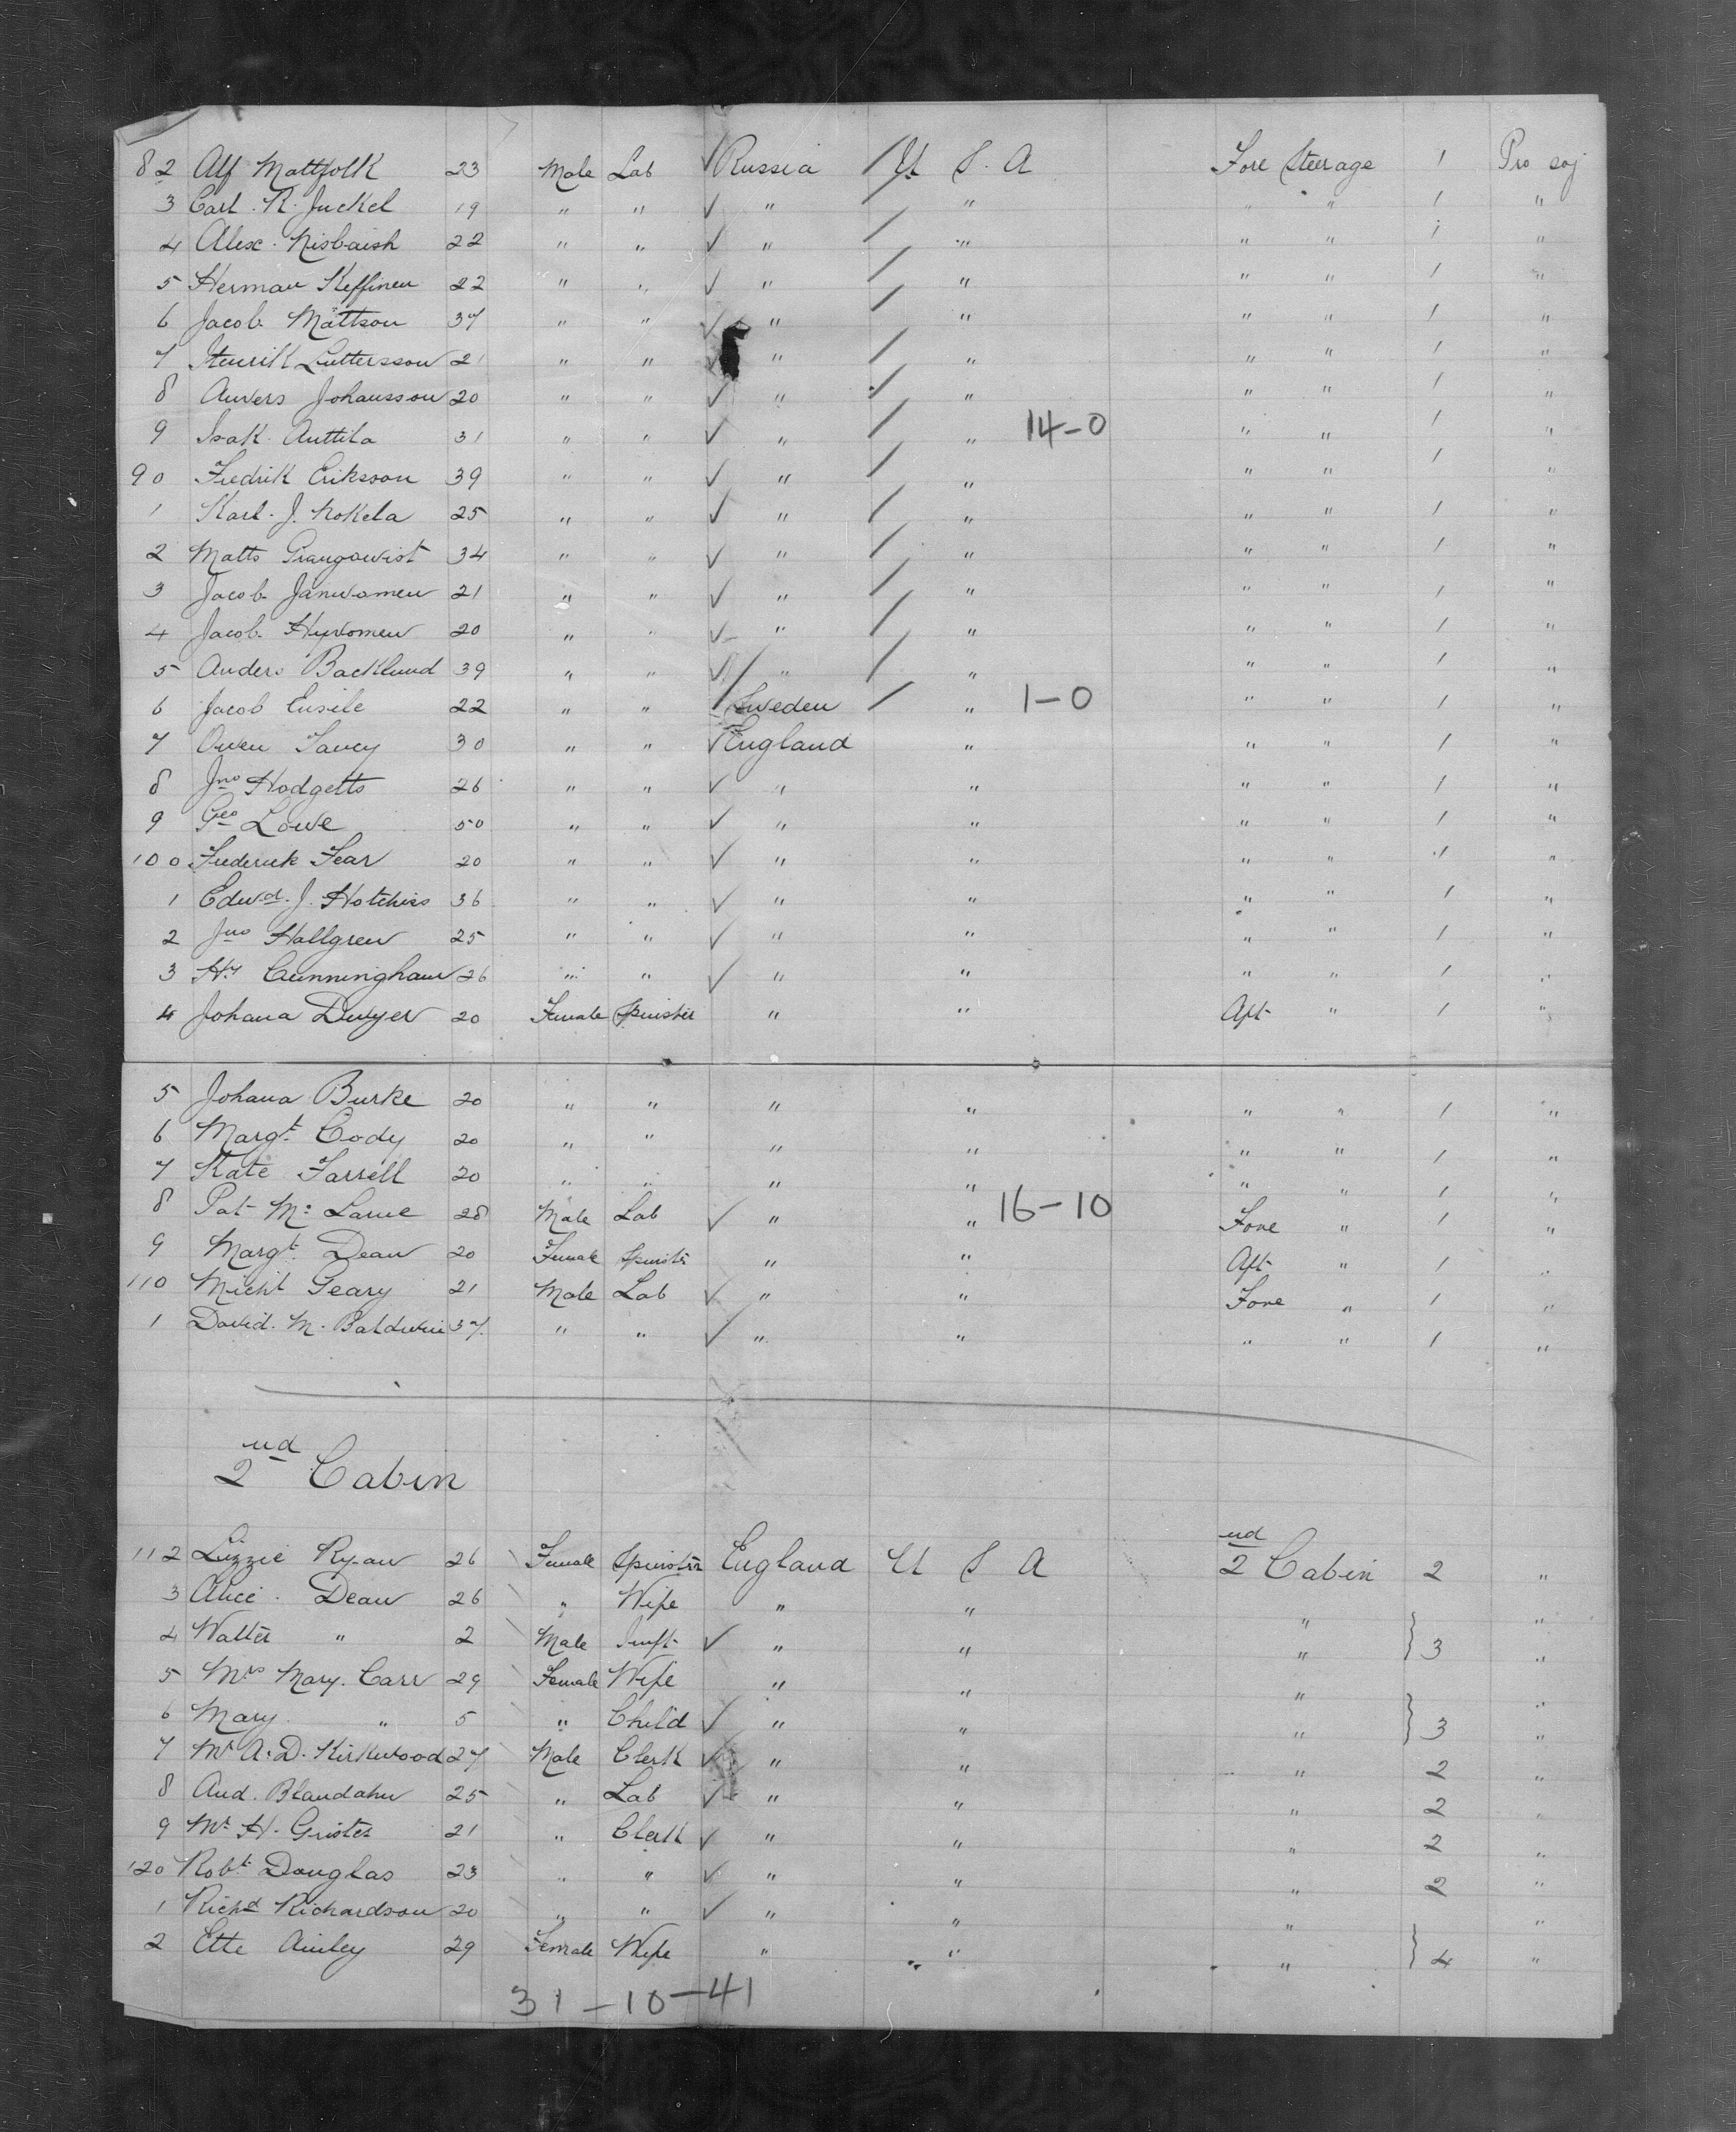 82 Alf Mattfolk 23 Male Lab ✓ Russia / U S. A Fore Steerage 1 Pro soj
3 Carl. R. Juckel 19 " " ✓ " / " " " 1 "
4 Alex. Nisbaish 22 " " ✓ " / " " " 1 "
5 Herman Keffinen 22 " " ✓ " / " " " 1 "
6 Jacob Mattson 37 " " ✓ " / " " " 1 "
7 Henrik Luttersson 21 " " ✓ " / " " " 1 "
8 Anvers Johansson 20 " " ✓ " / " " " 1 "
9 Isak. Anttila 31 " " ✓ " / " 14-0 " " 1 "
90 Fredrik Eriksson 39 " " ✓ " / " " " 1 "
1 Karl. J. Nokela 25 " " ✓ " / " " " 1 "
2 Matts Grangqwist 34 " " ✓ " / " " " 1 "
3 Jacob Janwomen 21 " " ✓ " / " " " 1 "
4 Jacob Hyvomen 20 " " ✓ " / " " " 1 "
5 Anders Backlund 39 " " ✓ " / " " " 1 "
6 Jacob 22 " " / Sweden / " 1-0 " " 1 "
7 Owen 30 " " ✓ England " " " 1 "
8 Jno Hodgetts 26 " " ✓ " " " " 1 "
9 Geo Lowe 50 " " ✓ " " " " 1 "
100 Frederick Fear 20 " " ✓ " " " " 1 "
1 Edwd. J. Hotchiss 36 " " ✓ " " " " 1 "
2 Jno Hallgren 25 " " ✓ " " " " 1 "
3 Hy Cunningham 26 " " ✓ " " " " 1 "
4 Johana Dwyer 20 Female Spinster " " Aft " 1 "
5 Johana Burke 20 " " " " " " 1 "
6 Margt. Cody 20 " " " " " " 1 "
7 Kate Farrell 20 " " " " " " 1 "
8 Pat Mc Larue 28 Male Lab ✓ " " 16-10 Fore " 1 "
9 Margt. Dean 20 Female Spinstr " " Aft " 1 "
110 Michl Geary 21 Male Lab ✓ " " Fore " 1 "
1 David. M. Baldwin 37 " " ✓ " " " " 1 "
2nd Cabin
112 Lizzie Ryan 26 Female Spinster England U S A 2nd Cabin 2 "
3 Alice. Dean 26 " Wife " " " "
4 Walter " 2 Male Inft ✓ " " " } 3 "
5 Mrs Mary. Carr 29 Female Wife " " " "
6 Mary " 5 " Child ✓ " " " } 3 "
7 Mr A. D. Kirkwood 27 Male Clerk ✓ " " " 2 "
8 And. Blandahn 25 " Lab ✓ " " " 2 "
9 Mr H. Grister 21 " Clerk ✓ " " " 2 "
120 Robt Douglas 23 " " ✓ " " " 2 "
1 Richd Richardson 20 " " ✓ " " " "
2 Ette Ainley 29 Female Wife " " " } 4 "
31-10-41